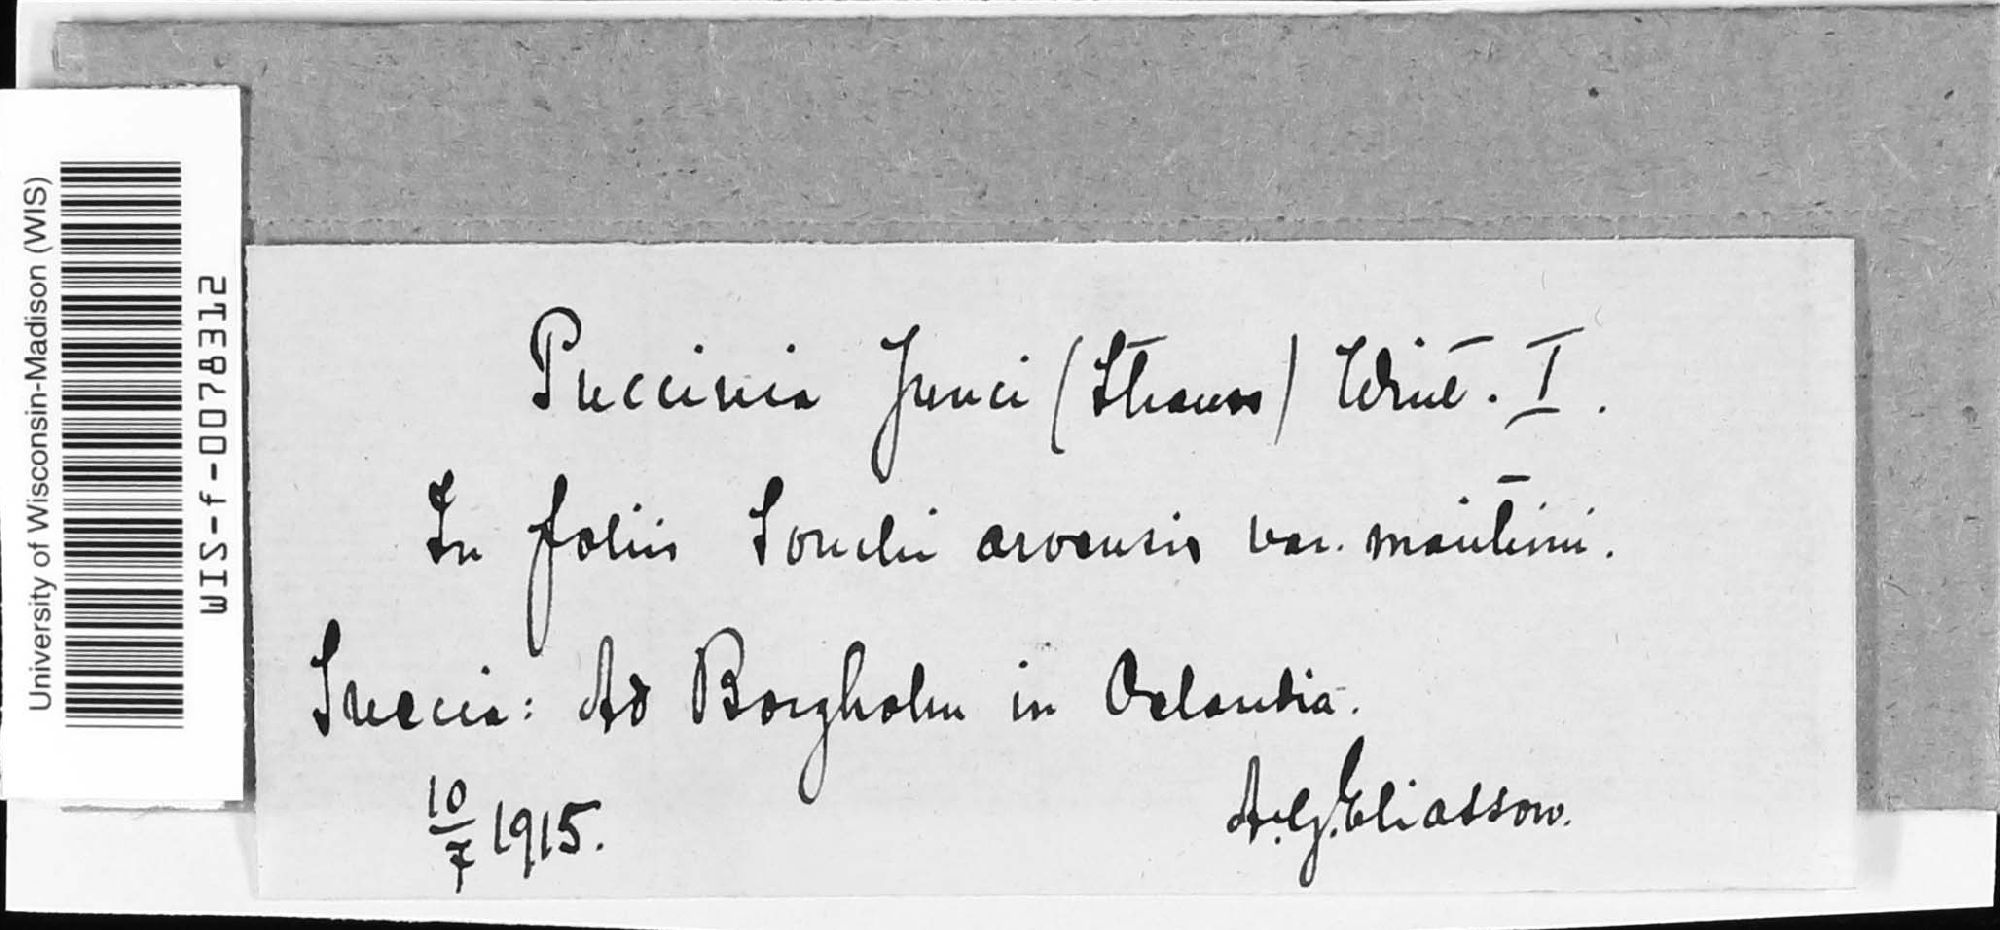 University of Wisconsin-Madison (WIS)
WIS-f-0078312
Puccinia Junci (Strauss) Wint. I.
In foliis Sonchi arvensis var. maritimi.
Suecia: Ad Borgholm in Oelandia.
10/7 1915.
A.G. Eliasson.